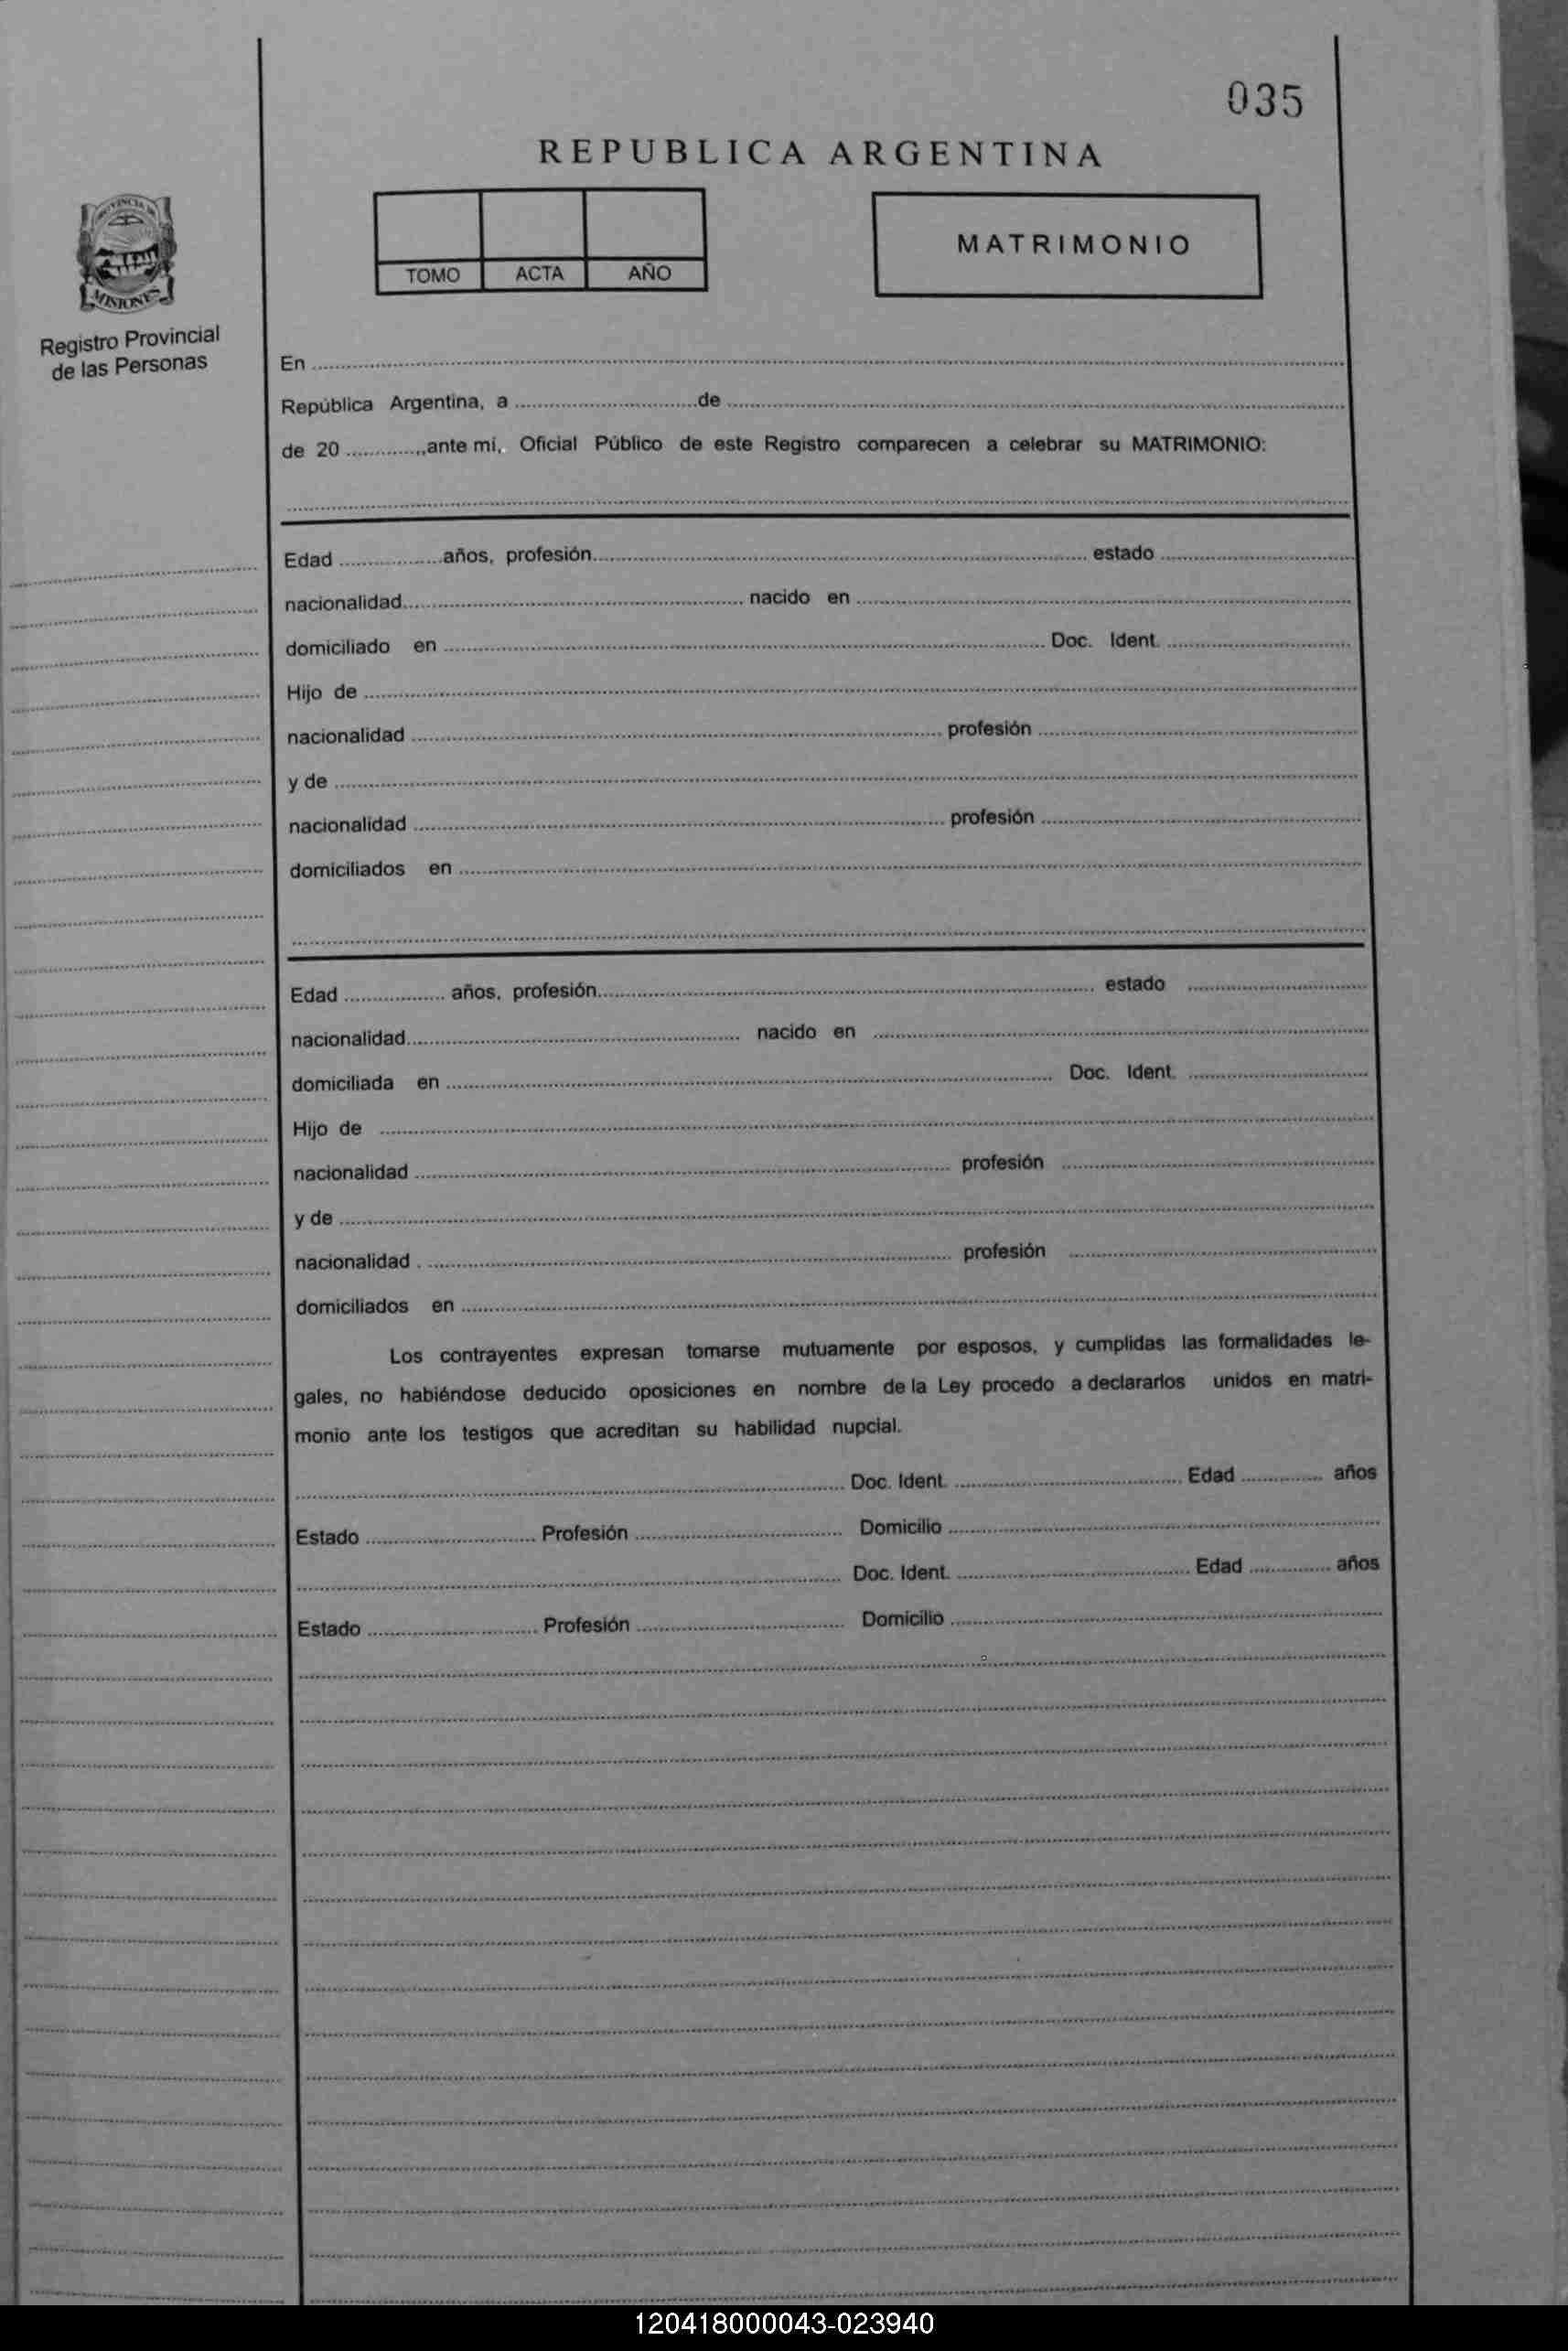 035
REPUBLICA ARGENTINA
PROVINCIA DE
MISIONES
Registro Provincial
de las Personas
TOMO ACTA AÑO
MATRIMONIO
En
República Argentina, a de
de 20 ,ante mí, Oficial Público de este Registro comparecen a celebrar su MATRIMONIO:
Edad años, profesión estado
nacionalidad nacido en
domiciliado en Doc. Ident.
Hijo de
nacionalidad profesión
y de
nacionalidad profesión
domiciliados en
Edad años, profesión estado
nacionalidad nacido en
domiciliada en Doc. Ident.
Hijo de
nacionalidad profesión
y de
nacionalidad profesión
domiciliados en
Los contrayentes expresan tomarse mutuamente por esposos, y cumplidas las formalidades le-
gales, no habiéndose deducido oposiciones en nombre de la Ley procedo a declararlos unidos en matri-
monio ante los testigos que acreditan su habilidad nupcial.
Doc. Ident. Edad años
Estado Profesión Domicilio
Doc. Ident. Edad años
Estado Profesión Domicilio
120418000043-023940